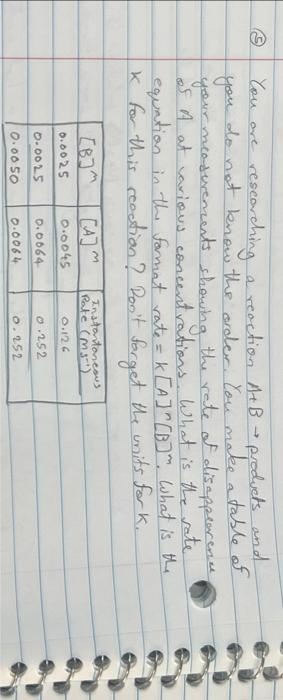 ⑤ You are researching a reaction A+B → products and
you do not know the order. You make a table of
your measurements showing the rate of disappearence
of A at various concentrations. What is the rate
equation in the format rate = k[A]ⁿ[B]ᵐ. What is the
k for this reaction? Don't forget the units for k.
[B] M [A] M Instantaneous Rate (Ms⁻¹)
0.0025 0.0045 0.126
0.0025 0.0064 0.252
0.0050 0.0064 0.252